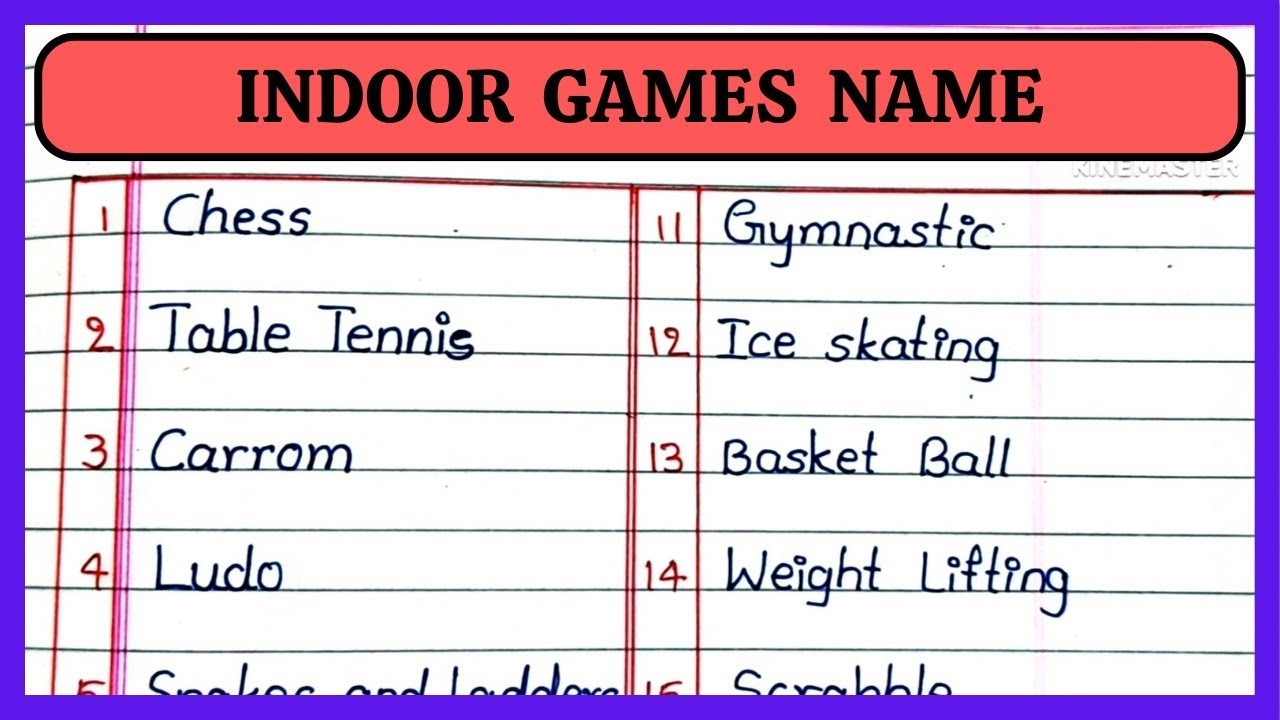 INDOOR GAMES NAME
KINEMASTER
1 Chess
2 Table Tennis
3 Carrom
4 Ludo
5 Snakes and Ladders
11 Gymnastic
12 Ice skating
13 Basket Ball
14 Weight Lifting
15 Scrabble